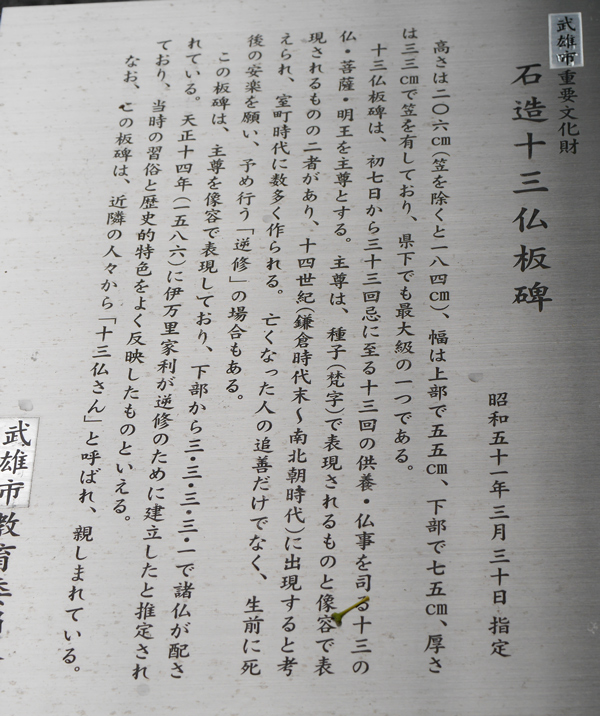 武雄市重要文化財
石造十三仏板碑
昭和五十一年三月三十日 指定
高さは二〇六cm(笠を除くと一八四cm)、幅は上部で五五cm、下部で七五cm、厚さ
は三三cmで笠を有しており、県下でも最大級の一つである。
十三仏板碑は、初七日から三十三回忌に至る十三回の供養・仏事を司る十三の
仏・菩薩・明王を主尊とする。主尊は、種子(梵字)で表現されるものと像容で表
現されるものの二者があり、十四世紀(鎌倉時代末～南北朝時代)に出現すると考
えられ、室町時代に数多く作られる。亡くなった人の追善だけでなく、生前に死
後の安楽を願い、予め行う「逆修」の場合もある。
この板碑は、主尊を像容で表現しており、下部から三・三・三・三・一で諸仏が配さ
れている。天正十四年(一五八六)に伊万里家利が逆修のために建立したと推定され
ており、当時の習俗と歴史的特色をよく反映したものといえる。
なお、この板碑は、近隣の人々から「十三仏さん」と呼ばれ、親しまれている。
武雄市教育委